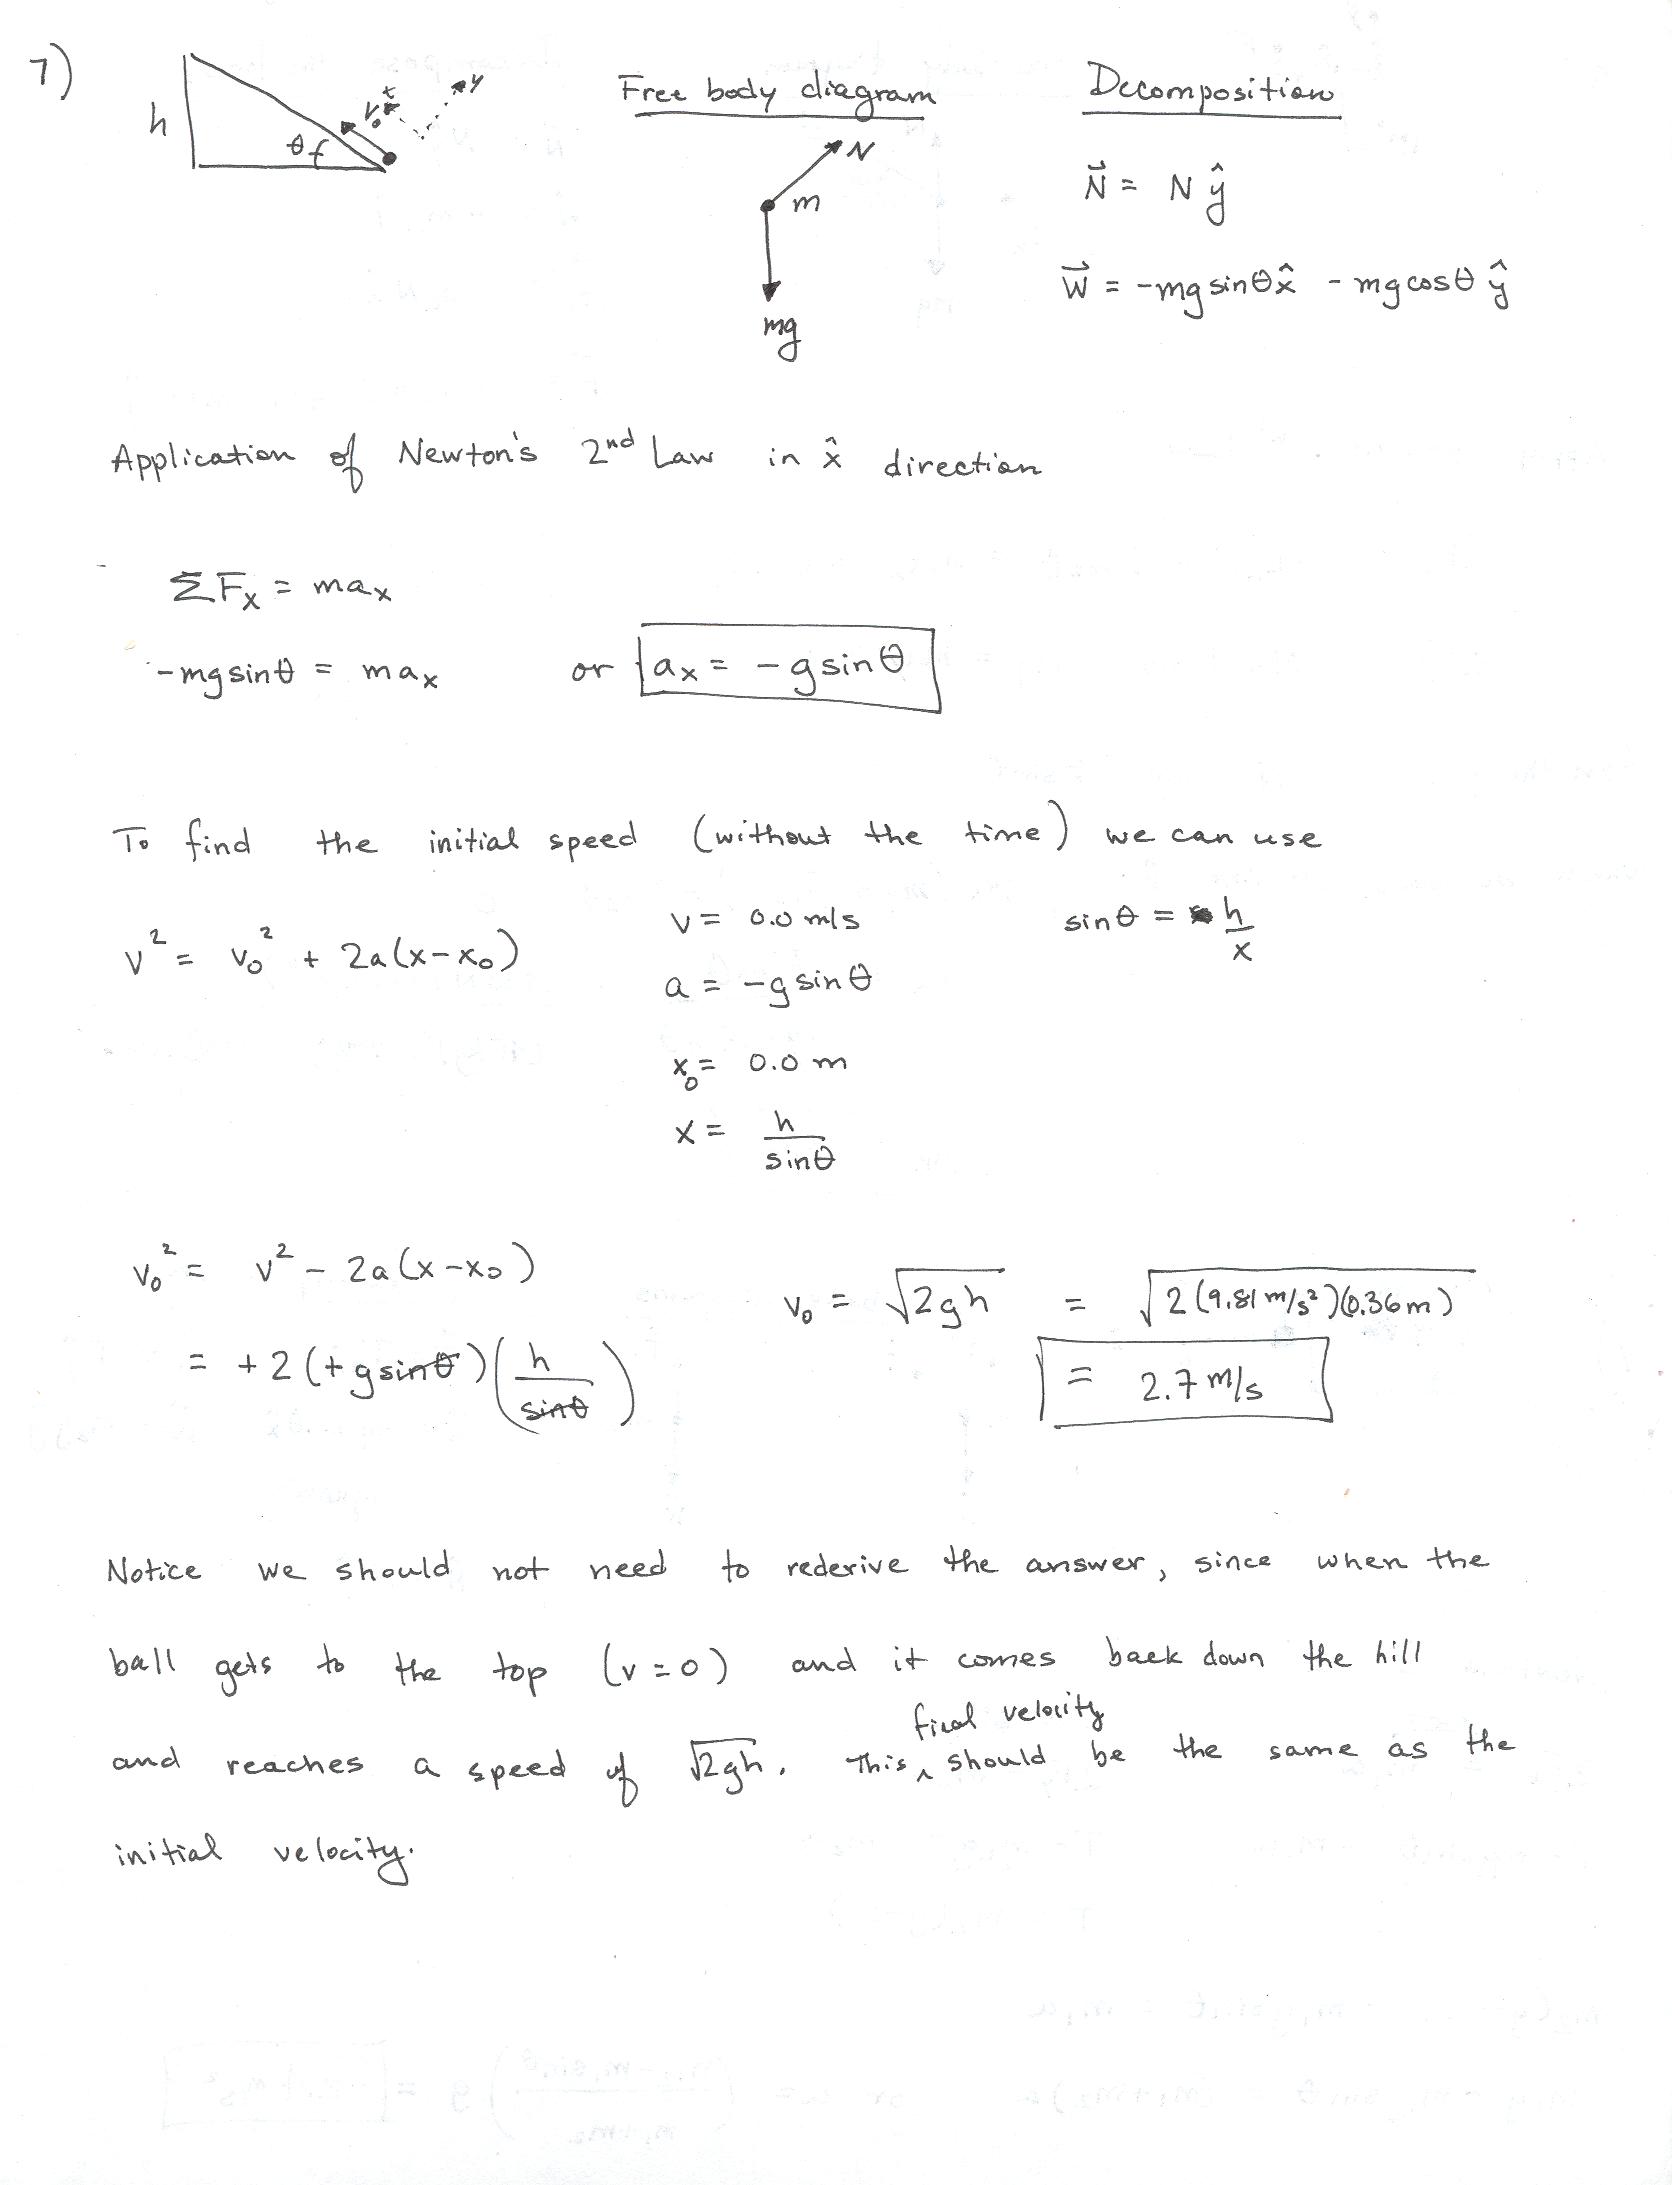 7)
h
θ
v₀
x
y
Free body diagram
N
m
mg
Decomposition
N⃗ = N ŷ
W⃗ = -mg sinθ x̂ - mg cosθ ŷ
Application of Newton's 2nd Law in x̂ direction
ΣFx = max
-mg sinθ = max or ax = -g sinθ
To find the initial speed (without the time) we can use
v² = v₀² + 2a(x-x₀)
v = 0.0 m/s
a = -g sinθ
x₀ = 0.0 m
x = h/sinθ
sinθ = h/x
v₀² = v² - 2a(x-x₀)
= +2(+g sinθ)(h/sinθ)
v₀ = √2gh = √2(9.81 m/s²)(0.36m)
= 2.7 m/s
Notice we should not need to rederive the answer, since when the
ball gets to the top (v=0) and it comes back down the hill
and reaches a speed of √2gh. This final velocity should be the same as the
initial velocity.